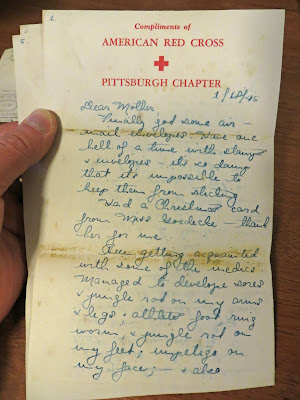 Compliments of
AMERICAN RED CROSS
PITTSBURGH CHAPTER
Dear Mother,
Finally got some air-
mail envelopes. Have one
hell of a time with stamps
& envelopes - it's so damp
that it's impossible to
keep them from sticking.
Had a Christmas card
from Miss Goedecke - thank
her for me.
Been getting acquainted
with some of the medics.
Managed to develope sores
& jungle rot on my arms
& legs; athletes foot, ring
worm, & jungle rot on
my feet; impetigo on
my face; - & also